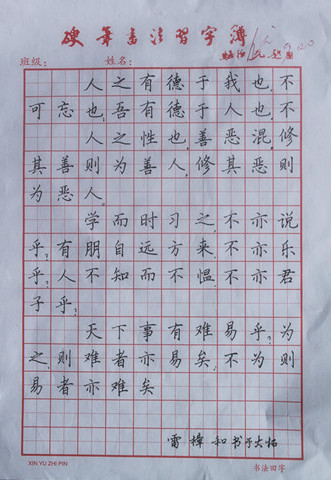 硬笔书法习字簿
班级：
姓名：
人之有德于我也，不
可忘也，吾有德于人也，不
人之性也，善恶混，修
其善则为善人，修其恶则
为恶人。
学而时习之，不亦说
乎？有朋自远方来，不亦乐
乎？人不知而不愠，不亦君
子乎？
天下事有难易乎？为
之，则难者亦易矣，不为则
易者亦难矣
书于
XIN YU ZHI PIN
书法田字